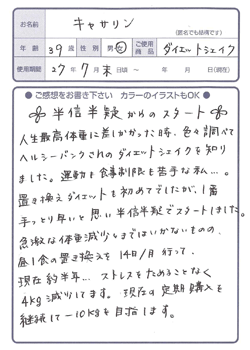 お名前 キャサリン
(匿名でも結構です)
年齢 39歳 性別 男・女 ご使用商品 ダイエットシェイク
使用期間 27年 7月 末日頃 ~ 年 月 日(現在)
● ご感想をお書き下さい カラーのイラストもOK ●
半信半疑からのスタート
人生最高体重に差しかかった時、色々調べて
ヘルシーバンクさんのダイエットシェイクを知り
ました。運動も食事制限も苦手な私…。
置き換えダイエットも初めてでしたが、1番
手っとり早いと思い半信半疑でスタートしました。
急激な体重減少とまではいかないものの、
昼1食の置き換えを14日/1月行って、
現在約半年… ストレスをためることなく
4kg減少してます。現在の定期購入を
継続して-10kgを目指します。